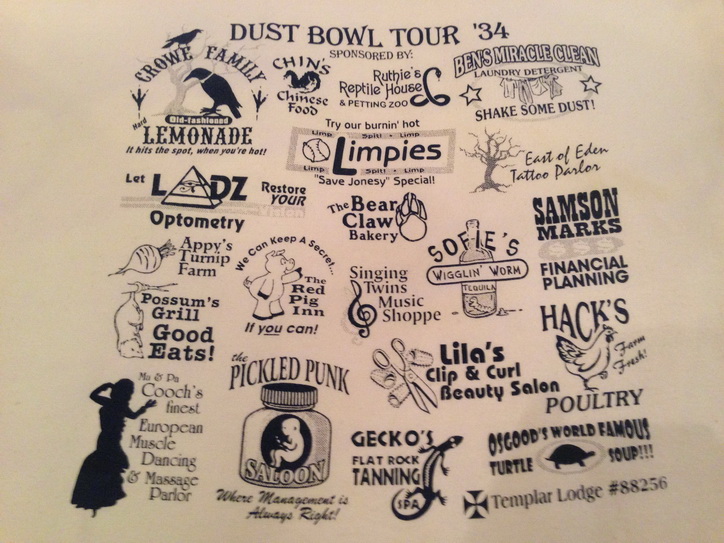 DUST BOWL TOUR '34
SPONSORED BY:
CROWE FAMILY
Old-fashioned
Hard
LEMONADE
It hits the spot, when you're hot!
CHIN'S
Chinese
Food
Ruthie's
Reptile House
& PETTING ZOO
BEN'S MIRACLE CLEAN
LAUNDRY DETERGENT
SHAKE SOME DUST!
Try our burnin' hot
Limp Spit! • Limp
Limpies
Limp Spit! • Limp
"Save Jonesy" Special!
East of Eden
Tattoo Parlor
Let
LODZ
Restore
YOUR
Vision
Optometry
The Bear
Claw
Bakery
SAMSON
MARKS
$ $ $
FINANCIAL
PLANNING
Appy's
Turnip
Farm
We Can Keep A Secret...
The
Red
Pig
Inn
If you can!
SOFIE'S
WIGGLIN' WORM
TEQUILA
Singing
Twins
Music
Shoppe
Possum's
Grill
Good
Eats!
HACK'S
Farm
Fresh!
POULTRY
the
PICKLED PUNK
SALOON
Where Management is
Always Right!
Lila's
Clip & Curl
Beauty Salon
Ma & Pa
Cooch's
finest
European
Muscle
Dancing
& Massage
Parlor
GECKO'S
FLAT ROCK
TANNING
SPA
OSGOOD'S WORLD FAMOUS
TURTLE SOUP!!!
Templar Lodge #88256